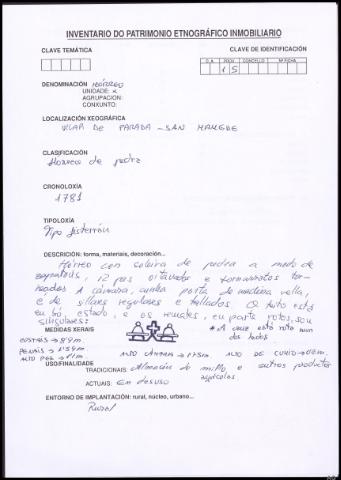 INVENTARIO DO PATRIMONIO ETNOGRÁFICO INMOBILIARIO
CLAVE TEMÁTICA
CLAVE DE IDENTIFICACIÓN
C.A. PROV CONCELLO Nº FICHA
15
DENOMINACIÓN HÓRREO
UNIDADE: X
AGRUPACIÓN:
CONXUNTO:
LOCALIZACIÓN XEOGRÁFICA
VILAR DE PARADA - SAN MAMEDE
CLASIFICACIÓN
Hórreo de pedra
CRONOLOXÍA
1781
TIPOLOXÍA
Tipo
DESCRICIÓN: forma, materiais, decoración...
Hórreo con soleira de pedra a modo de
12 pes oitavados e tornarratos
A cámara, cunha porta de madeira vella,
é de sillares regulares e tallados. O teito está
en bó estado, e os remates, en parte rotos, son
singulares:
* A cruz está rota nun
dos lados
MEDIDAS XERAIS
COSTAS → 8'9m
PENAIS → 1'59m
ALTO PES → 1'1m
ALTO CÁMARA → 1'75m
ALTO DE CUMIO →
USO/FINALIDADE
TRADICIONAIS: Almacén de millo e outros productos
agrícolas
ACTUAIS: En desuso
ENTORNO DE IMPLANTACIÓN: rural, núcleo, urbano...
Rural